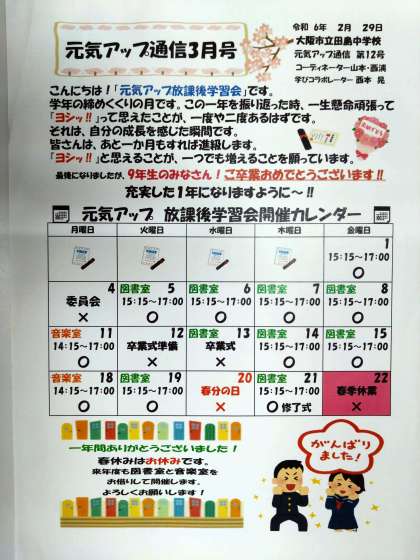 元気アップ通信3月号
令和 6年 2月 29日
大阪市立田島中学校
元気アップ通信 第12号
コーディネーター山本・西浦
学びコラボレーター 西本 晃
こんにちは!「元気アップ放課後学習会」です。
学年の締めくくりの月です。この一年を振り返った時、一生懸命頑張って
「ヨシッ!!」って思えたことが、一度や二度あるはずです。
それは、自分の成長を感じた瞬間です。
皆さんは、あと一か月もすれば進級します。
「ヨシッ!!」と思えることが、一つでも増えることを願っています。
最後になりましたが、9年生のみなさん!ご卒業おめでとうございます!!
充実した1年になりますように~!!
元気アップ 放課後学習会開催カレンダー
月曜日 火曜日 水曜日 木曜日 金曜日
1
15:15~17:00
○
4 図書室 5 図書室 6 図書室 7 図書室 8
委員会 15:15~17:00 15:15~17:00 14:15~17:00 15:15~17:00
× ○ ○ ○ ○
音楽室 11 12 13 図書室 14 図書室 15
14:15~17:00 卒業式準備 卒業式 14:15~17:00 15:15~17:00
○ × × ○ ○
音楽室 18 図書室 19 20 図書室 21 22
14:15~17:00 15:15~17:00 春分の日 14:15~17:00 春季休業
○ ○ × ○ 修了式 ×
一年間ありがとうございました!
春休みはお休みです。
来年度も図書室と音楽室を
お借りして開催します。
よろしくお願いします!
がんばり
ました!